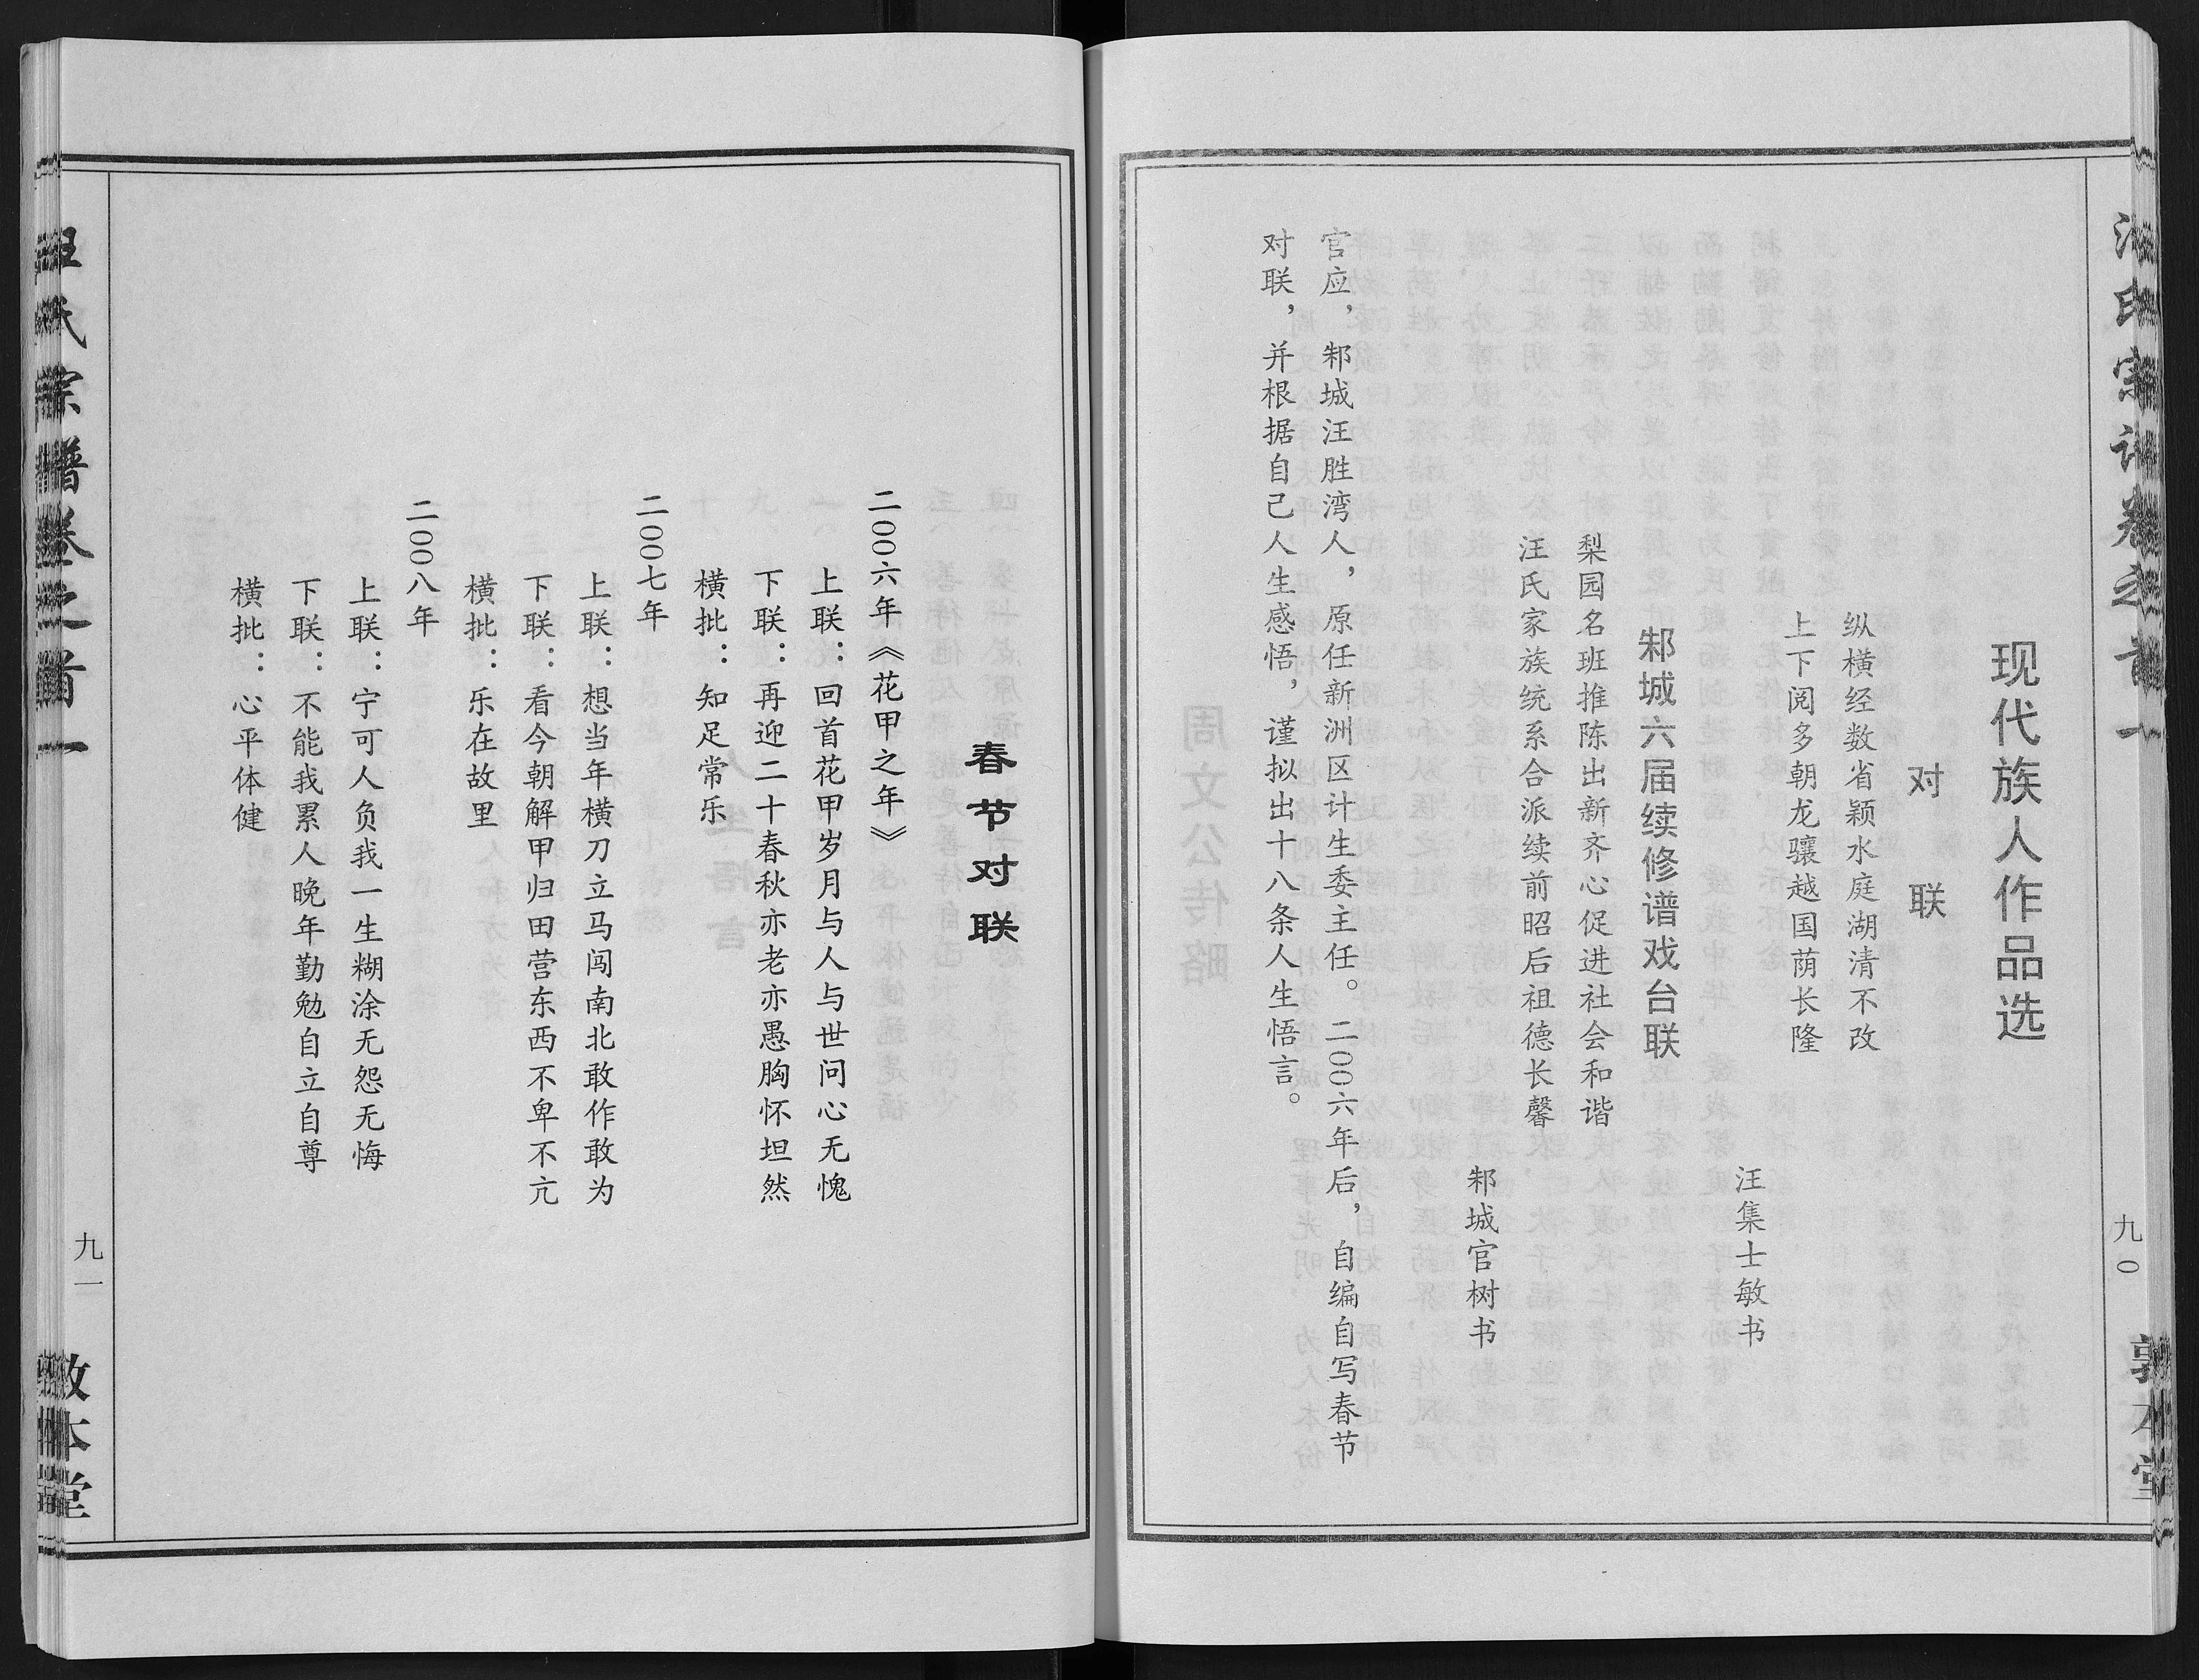 汪氏宗谱卷之首一
九〇
敦本堂
现代族人作品选
对联
纵横经数省颖水庭湖清不改
上下阅多朝龙骧越国荫长隆
汪集士敏书
邾城六届续修谱戏台联
梨园名班推陈出新齐心促进社会和谐
汪氏家族统系合派续前昭后祖德长馨
邾城官树书
官应，邾城汪胜湾人，原任新洲区计生委主任。二〇〇六年后，自编自写春节
对联，并根据自己人生感悟，谨拟出十八条人生悟言。
春节对联
二〇〇六年《花甲之年》
上联：回首花甲岁月与人与世问心无愧
下联：再迎二十春秋亦老亦愚胸怀坦然
横批：知足常乐
二〇〇七年
上联：想当年横刀立马闯南北敢作敢为
下联：看今朝解甲归田营东西不卑不亢
横批：乐在故里
二〇〇八年
上联：宁可人负我一生糊涂无怨无悔
下联：不能我累人晚年勤勉自立自尊
横批：心平体健
汪氏宗谱卷之首一
九一
敦本堂